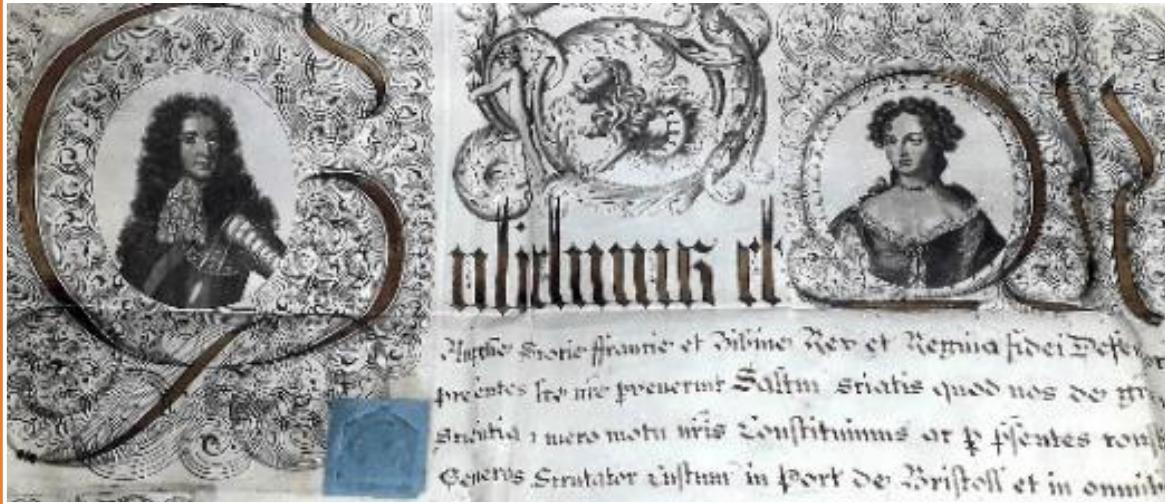 Gulielmus et M
Anglie Scotie ffrancie et Hibnie Rex et Regina fidei Defen
presentes lre nre pvenerint Saltm Sciatis quod nos de
mero motu nris Constituimus ac p psentes
Generos Scrutator Custum in Port de Bristoll et in omnib